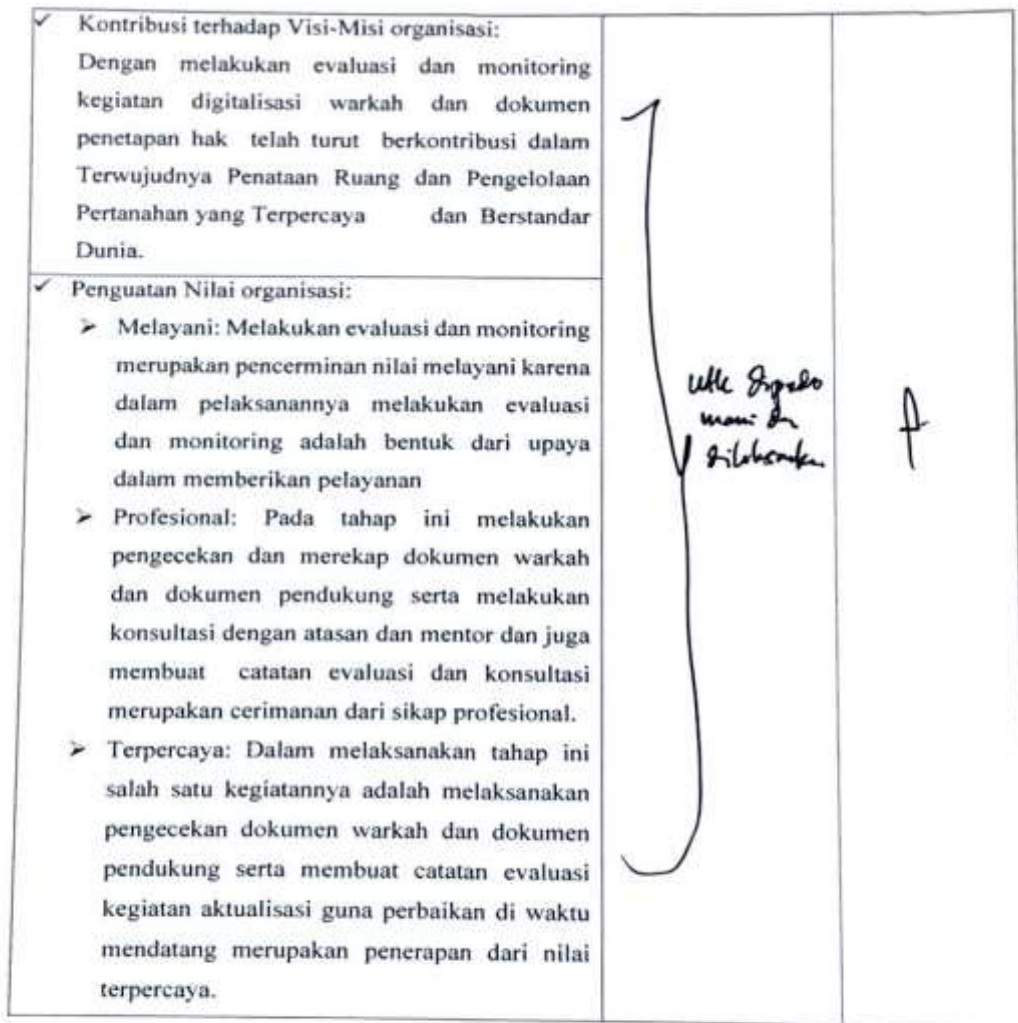 ✓ Kontribusi terhadap Visi-Misi organisasi:
Dengan melakukan evaluasi dan monitoring
kegiatan digitalisasi warkah dan dokumen
penetapan hak telah turut berkontribusi dalam
Terwujudnya Penataan Ruang dan Pengelolaan
Pertanahan yang Terpercaya dan Berstandar
Dunia.
✓ Penguatan Nilai organisasi:
➢ Melayani: Melakukan evaluasi dan monitoring
merupakan pencerminan nilai melayani karena
dalam pelaksanannya melakukan evaluasi
dan monitoring adalah bentuk dari upaya
dalam memberikan pelayanan
➢ Profesional: Pada tahap ini melakukan
pengecekan dan merekap dokumen warkah
dan dokumen pendukung serta melakukan
konsultasi dengan atasan dan mentor dan juga
membuat catatan evaluasi dan konsultasi
merupakan cerimanan dari sikap profesional.
➢ Terpercaya: Dalam melaksanakan tahap ini
salah satu kegiatannya adalah melaksanakan
pengecekan dokumen warkah dan dokumen
pendukung serta membuat catatan evaluasi
kegiatan aktualisasi guna perbaikan di waktu
mendatang merupakan penerapan dari nilai
terpercaya.